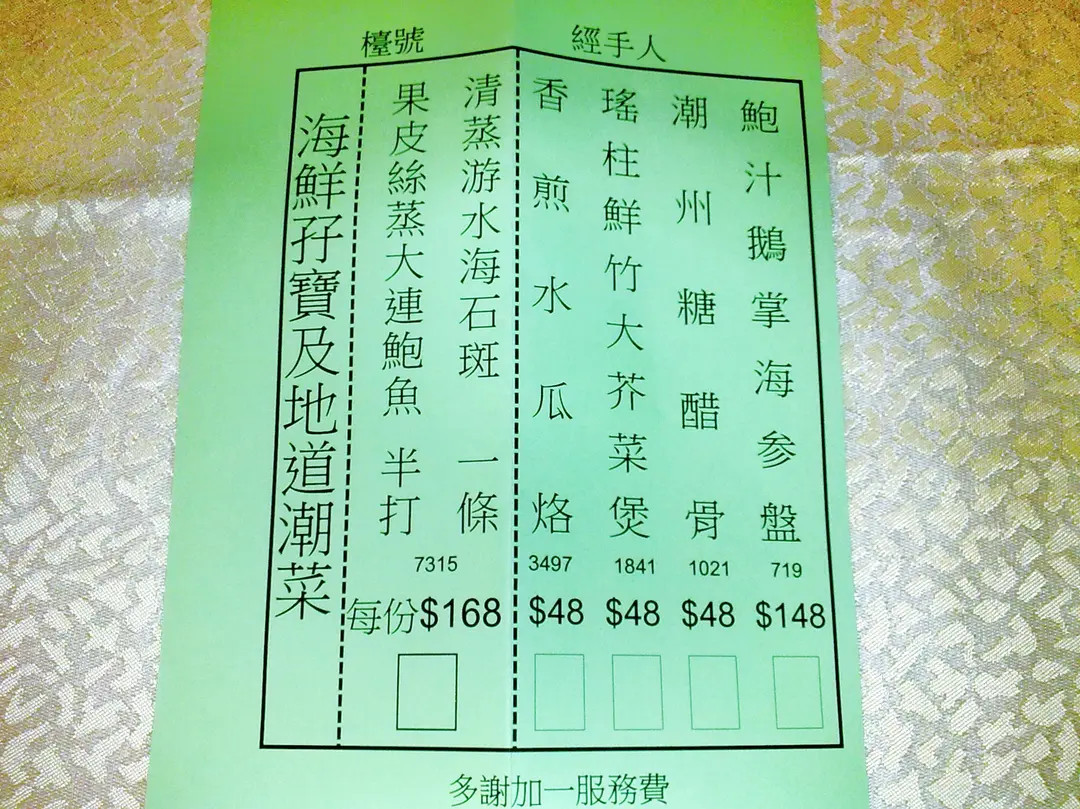 檯號
經手人
鮑汁鵝掌海参盤
719
$148
潮州糖醋骨
1021
$48
瑤柱鮮竹大芥菜煲
1841
$48
香煎水瓜烙
3497
$48
清蒸游水海石斑 一條
果皮絲蒸大連鮑魚 半打
7315
每份$168
海鮮孖寶及地道潮菜
多謝加一服務費